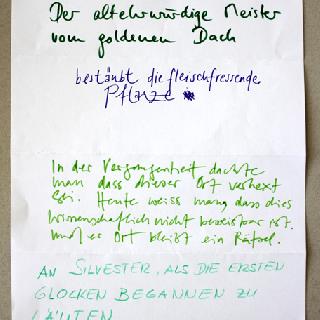 Der altehrwürdige Meister
vom goldenen Dach
bestäubt die fleischfressende
Pflanze
In der Vergangenheit dachte
man dass dieser Ort verhext
sei. Heute weiss mang dass dies
wissenschaftlich nicht beweisbar ist.
Und der Ort bleibt ein Rätsel.
AN SILVESTER, ALS DIE ERSTEN
GLOCKEN BEGANNEN ZU
LÄUTEN